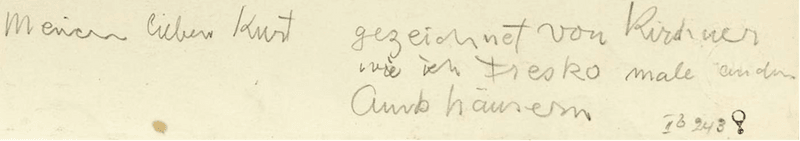 Meinem lieben Kurt gezeichnet von Kirchner
wie ich Fresko male an den
Amtshäusern
II b 243